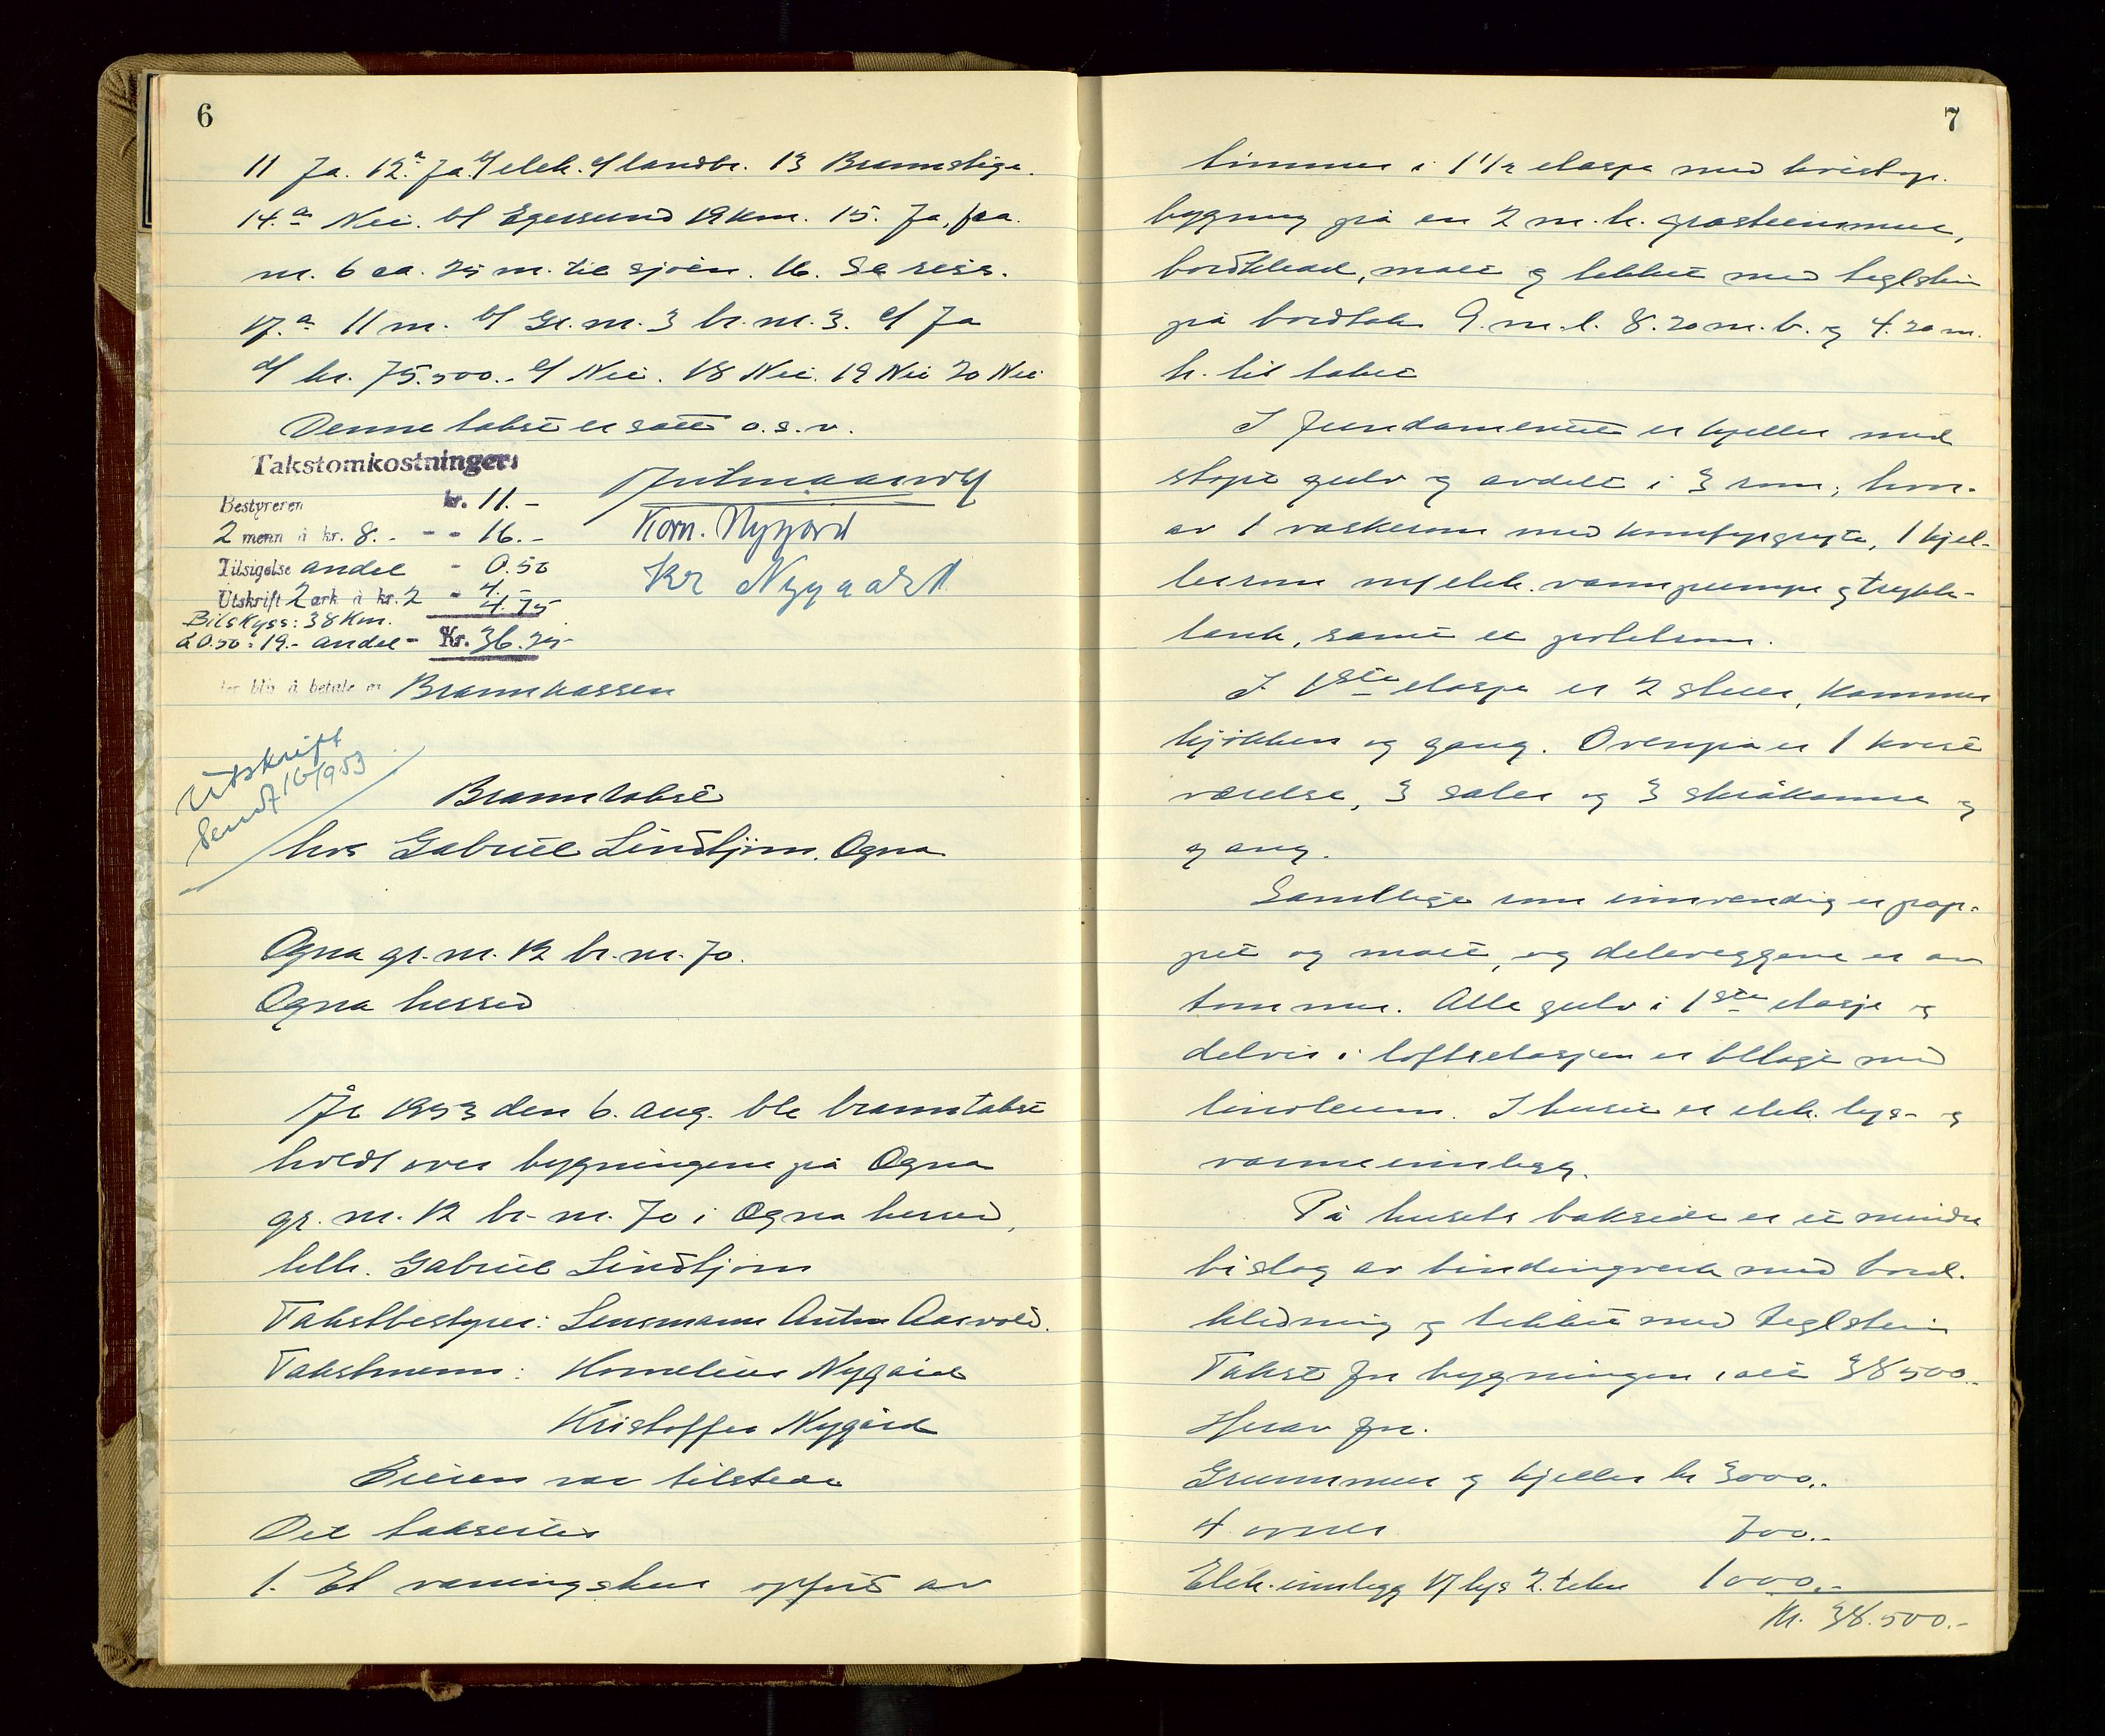 6
11 Ja. 12.a Ja. b/ elek. c/ landbr. 13 Brannstige.
14.a Nei. b/ Egersund 19 km. 15. Ja, fra
nr. 6 ca. 25 m. til sjøen. 16. Se skiss.
17.a 11 m. b/ Gr. nr. 3 br. nr. 3. c/ Ja
d/ kr. 75.500.- e/ Nei. 18 Nei. 19 Nei 20 Nei
Denne takst er satt o.s.v.
Takstomkostninger:
Bestyreren kr. 11.-
2 menn à kr. 8.- - - 16.-
Tilsigelse andel - 0.50
Utskrift 2 ark à kr. 2 - 4.-
Bilskyss: 38 km. 4.75
à 0.50 = 19.- andel - Kr. 36.25
som blir å betale av Brannkassen
Korn. Nygård
Kr Nygaard
Utskrift
sendt 16/9 53
Branntakst
hos Gabriel Lindtjørn, Ogna
Ogna gr. nr. 12 br. nr. 70.
Ogna herred
År 1953 den 6. aug. ble branntakst
holdt over bygningene på Ogna
gr. nr. 12 br. nr. 70 i Ogna herred,
tilh. Gabriel Lindtjørn
Takstbestyrer: Lensmann Anton Aarvold.
Takstmenn: Kornelius Nygård
Kristoffer Nygård
Eieren var tilstede
Det takseres
1. Et våningshus oppført av
7
tømmer i 1 1/2 etasje med kvistop-
bygning på en 2 m. h. gråsteinsmur,
bordkledd, malt og tekket med teglstein
på bordtak 9. m. l. 8.20 m. b. og 4.20 m.
h. til taket
I fundamentet er kjeller med
støpt gulv og avdelt i 3 rom, hvor-
av 1 vaskerom med komfyrgryte, 1 kjel-
lerrom m/ elek. vannpumpe og trykk-
tank, samt et potetrom.
I 1ste etasje er 2 stuer, kammer
kjøkken og gang. Ovenpå er 1 kvist
værelse, 3 saler og 3 skråkammer og
gang.
Samtlige rom innvendig er pap-
pet og malt, og deleveggene er av
tømmer. Alle gulv i 1ste etasje og
delvis i loftsetasjen er belagt med
linoleum. I huset er elek. lys- og
varmeinnlegg.
På husets bakside er et mindre
bislag av bindingverk med bord-
kledning og tekket med teglstein
Takst for bygningen i alt 38500.-
Herav for
Grunnmur og kjeller kr 3000.-
4 ovner 700.-
Elek. innlegg 17 lys 2. tekn 1000.-
Kr. 38.500.-